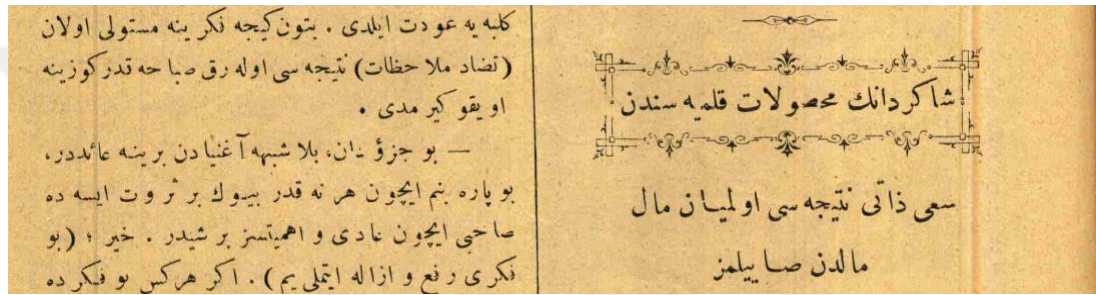 شاكردانك محصولات قلميه سندن
سعی ذاتی نتيجه سی اولميان مال
مالدن صاييلمز
كلبه يه عودت ايلدی . بتون كيجه فكرينه مستولی اولان
(تضاد ملاحظات) نتيجه سی اوله رق صباحه قدر كوزينه
اويقو كيرمدی .
— بو جزؤدان، بلا شبهه آغنيادن برينه عائددر،
بو پاره بنم ايچون هر نه قدر بيوك بر ثروت ايسه ده
صاحبی ايچون عادی و اهميتسز بر شيدر . خير ؛ (بو
فكری رفع و ازاله ايتملی يم) . اكر هركس بو فكرده